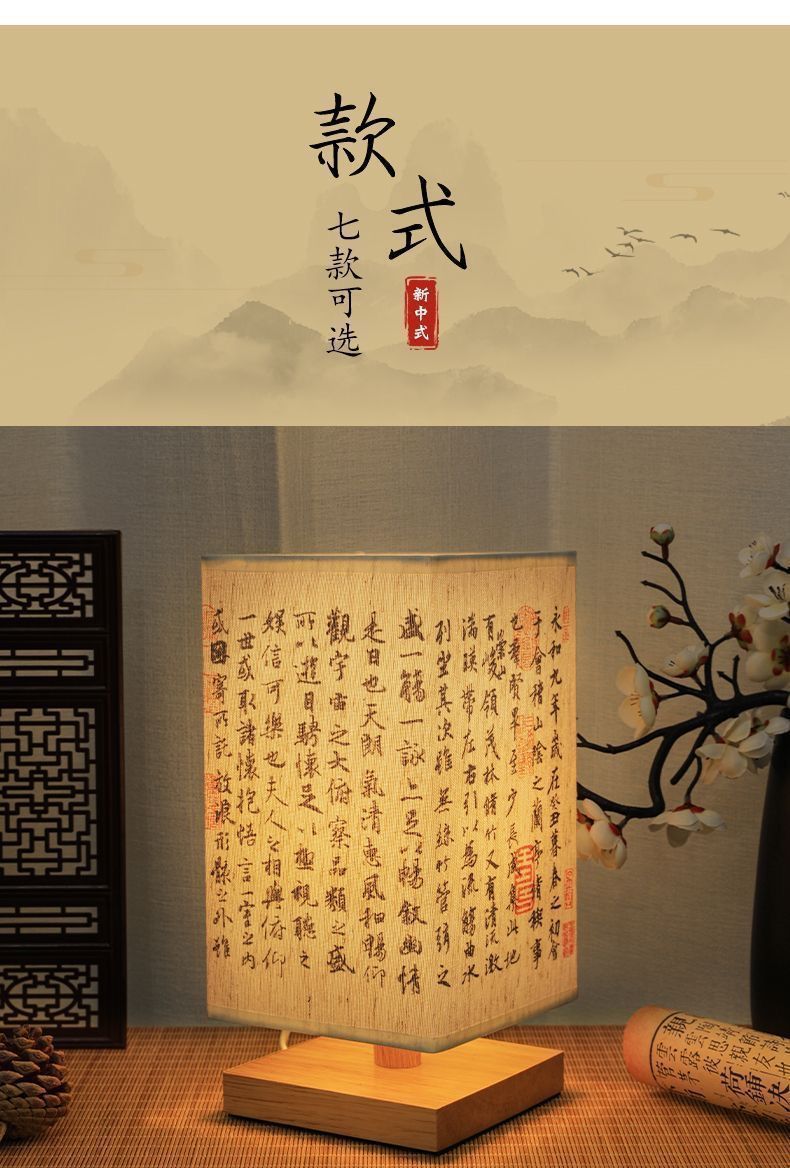 款式
七款可选
新中式
永和九年歲在癸丑暮春之初會
于會稽山陰之蘭亭脩稧事
也羣賢畢至少長咸集此地
有崇山峻領茂林脩竹又有清流激
湍暎帶左右引以為流觴曲水
列坐其次雖無絲竹管弦之
盛一觴一詠亦足以暢敘幽情
是日也天朗氣清惠風和暢仰
觀宇宙之大俯察品類之盛
所以遊目騁懷足以極視聽之
娛信可樂也夫人之相與俯仰
一世或取諸懷抱悟言一室之內
或因寄所託放浪形骸之外雖
荷鍤決